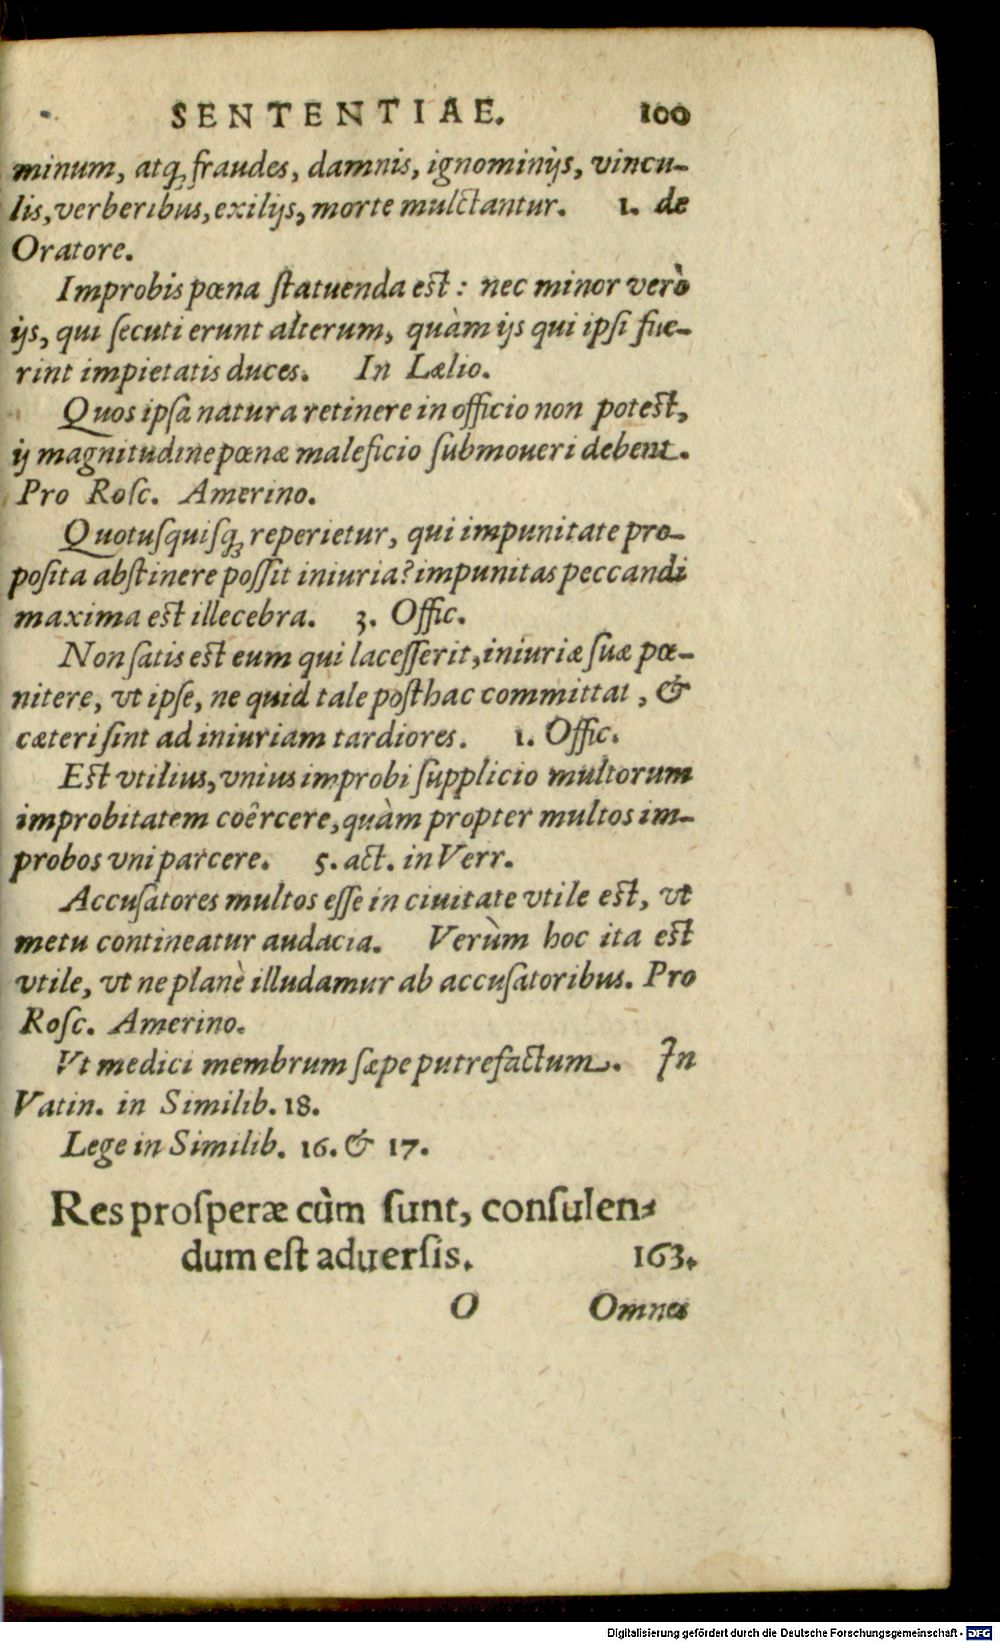 SENTENTIAE. 100
minum, atq; fraudes, damnis, ignominijs, vincu-
lis, verberibus, exilijs, morte mulctantur. 1. de
Oratore.
Improbis pœna ſtatuenda eſt: nec minor verò
ijs, qui ſecuti erunt alterum, quàm ijs qui ipſi fue-
rint impietatis duces. In Lælio.
Quos ipſa natura retinere in officio non poteſt,
ij magnitudine pœnæ maleficio ſubmoueri debent.
Pro Roſc. Amerino.
Quotuſquiſq; reperietur, qui impunitate pro-
poſita abſtinere poſſit iniuria? impunitas peccandi
maxima eſt illecebra. 3. Offic.
Non ſatis eſt eum qui laceſſerit, iniuriæ ſuæ pœ-
nitere, vt ipſe, ne quid tale poſthac committat, &
cæteri ſint ad iniuriam tardiores. 1. Offic.
Eſt vtilius, vnius improbi ſupplicio multorum
improbitatem coêrcere, quàm propter multos im-
probos vni parcere. 5. act. in Verr.
Accuſatores multos eſſe in ciuitate vtile eſt, vt
metu contineatur audacia. Verùm hoc ita eſt
vtile, vt ne planè illudamur ab accuſatoribus. Pro
Roſc. Amerino.
Vt medici membrum ſæpe putrefactum. In
Vatin. in Similib. 18.
Lege in Similib. 16. & 17.
Res proſperæ cùm ſunt, conſulen-
dum eſt aduerſis. 163.
O Omnes
Digitalisierung gefördert durch die Deutsche Forschungsgemeinschaft - DFG